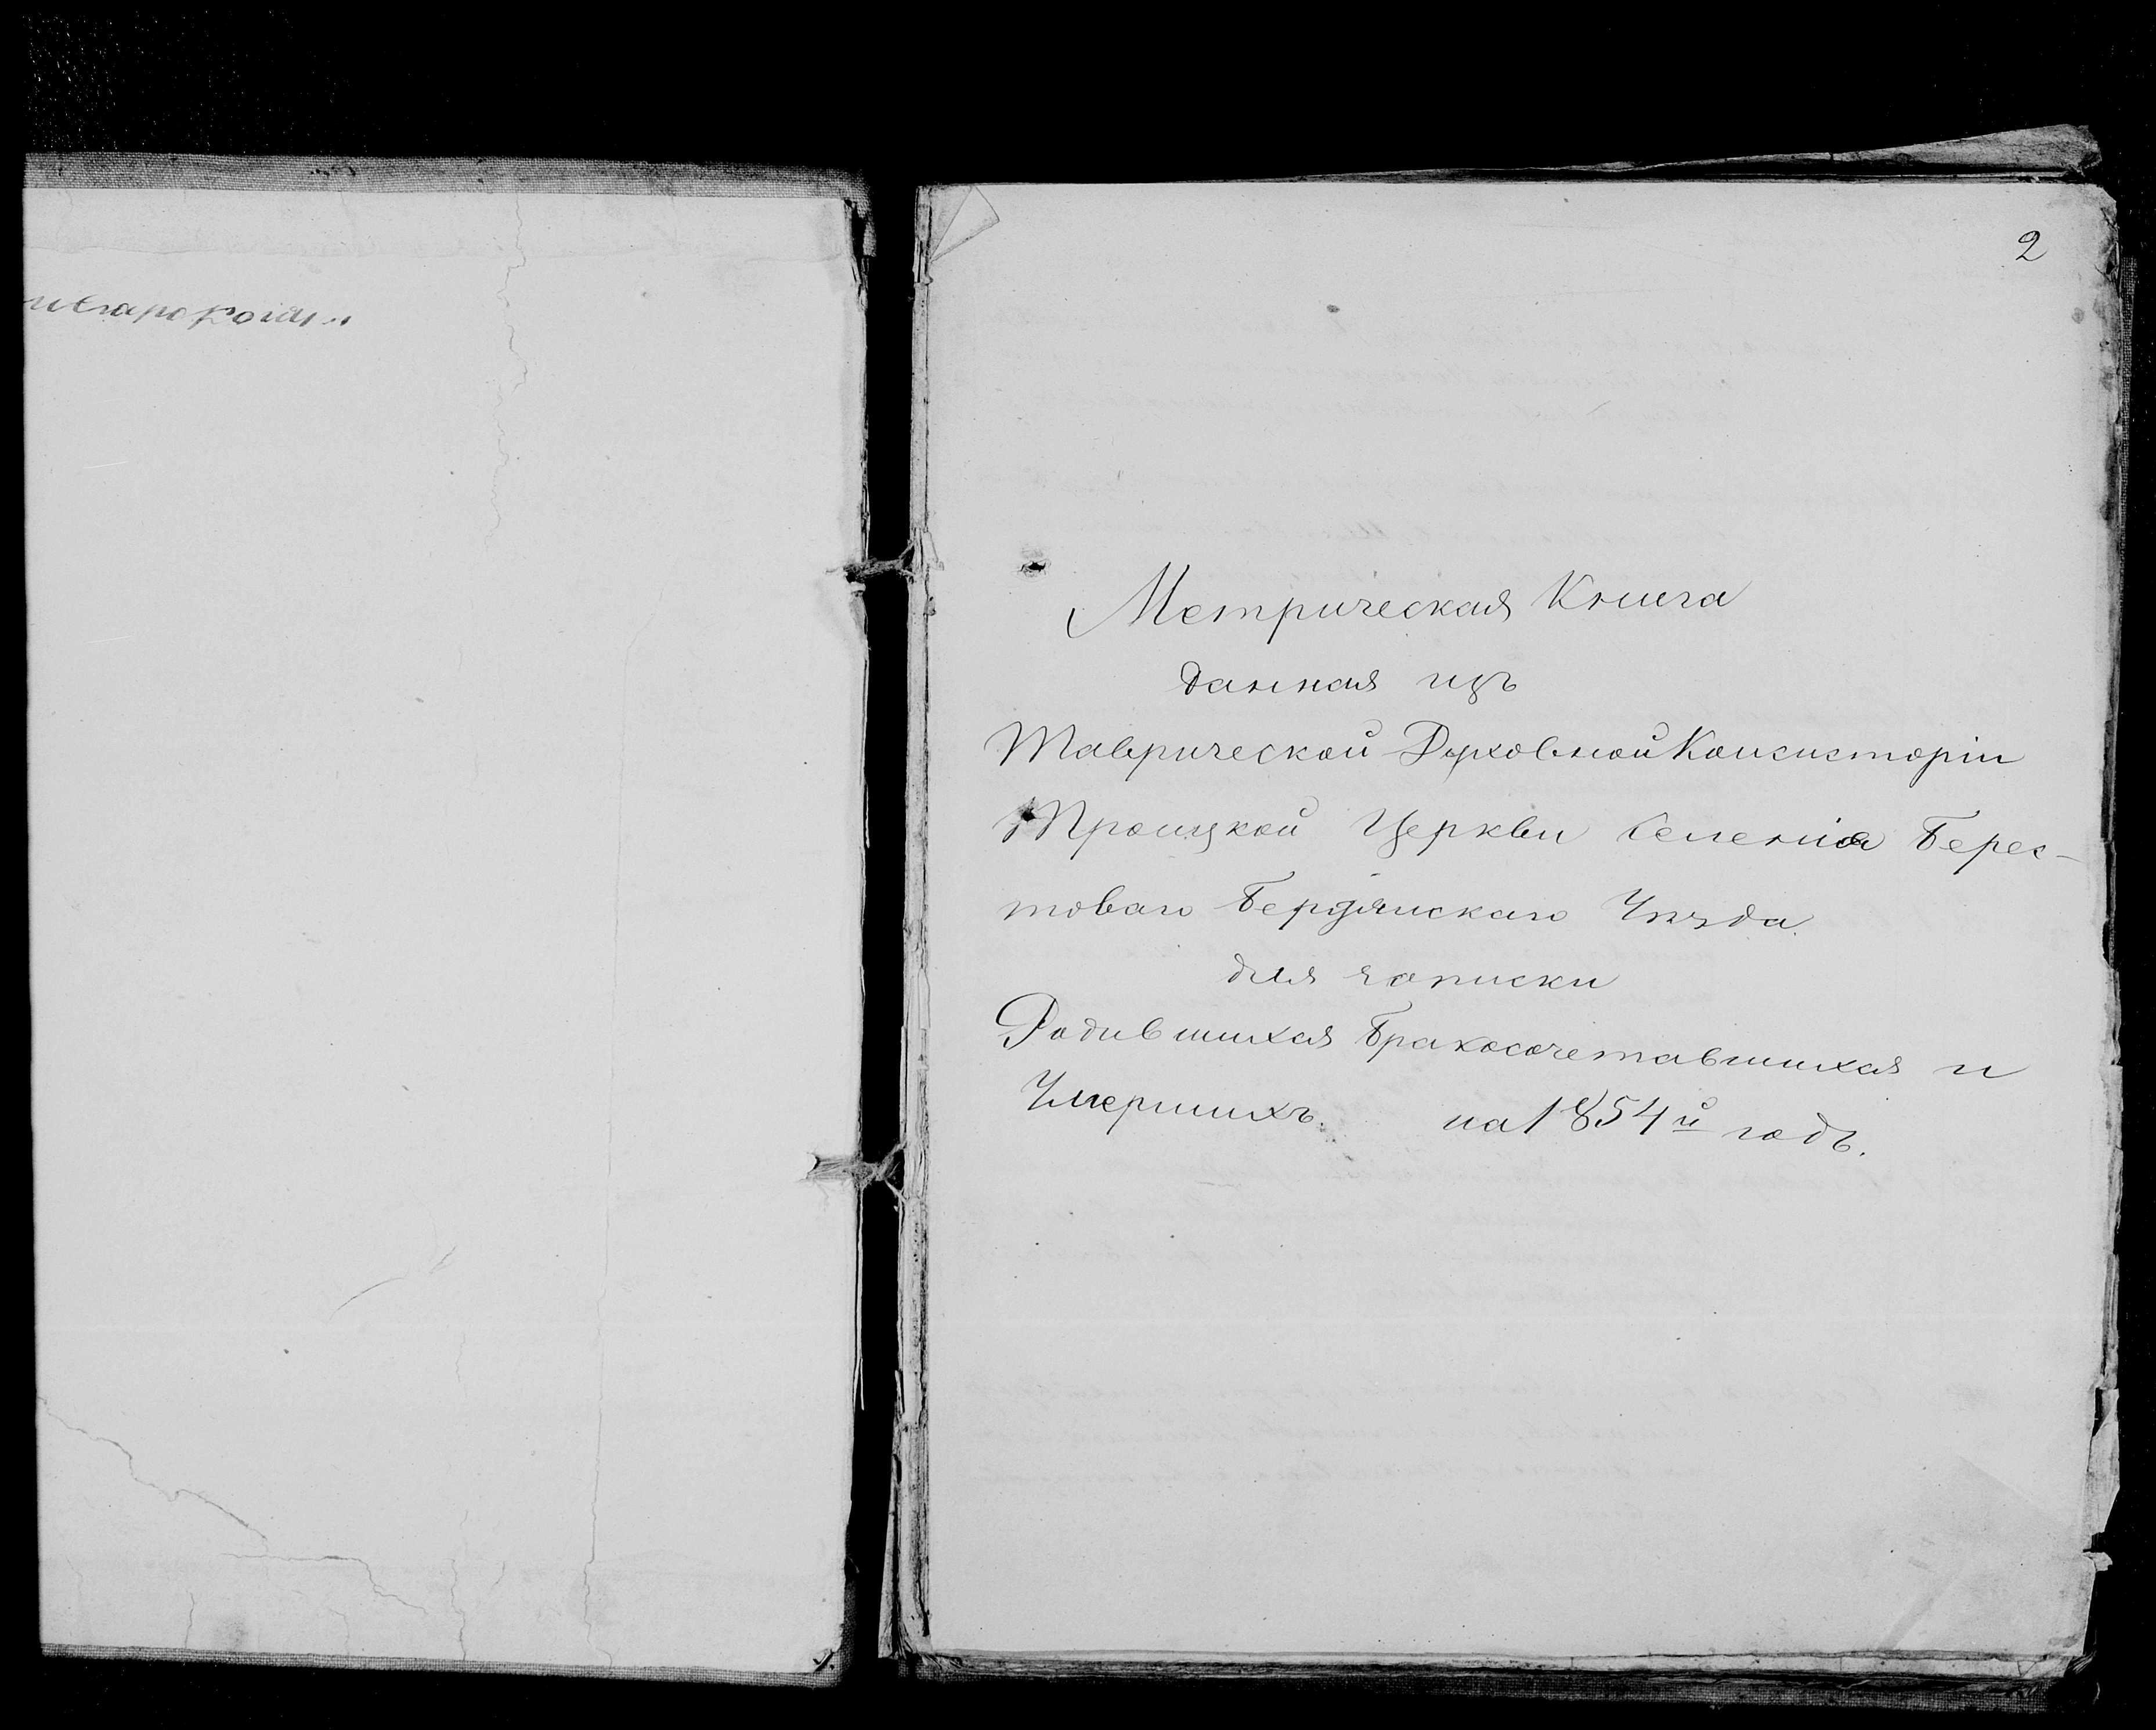 2
Метрическая Книга
данная изъ
Таврической Духовной Консисторіи
Троицкой Церкви селенія Берес-
товаго Бердянскаго Уѣзда.
для записки
Родившихся Бракосочетавшихся и
Умершихъ. на 1854й годъ.